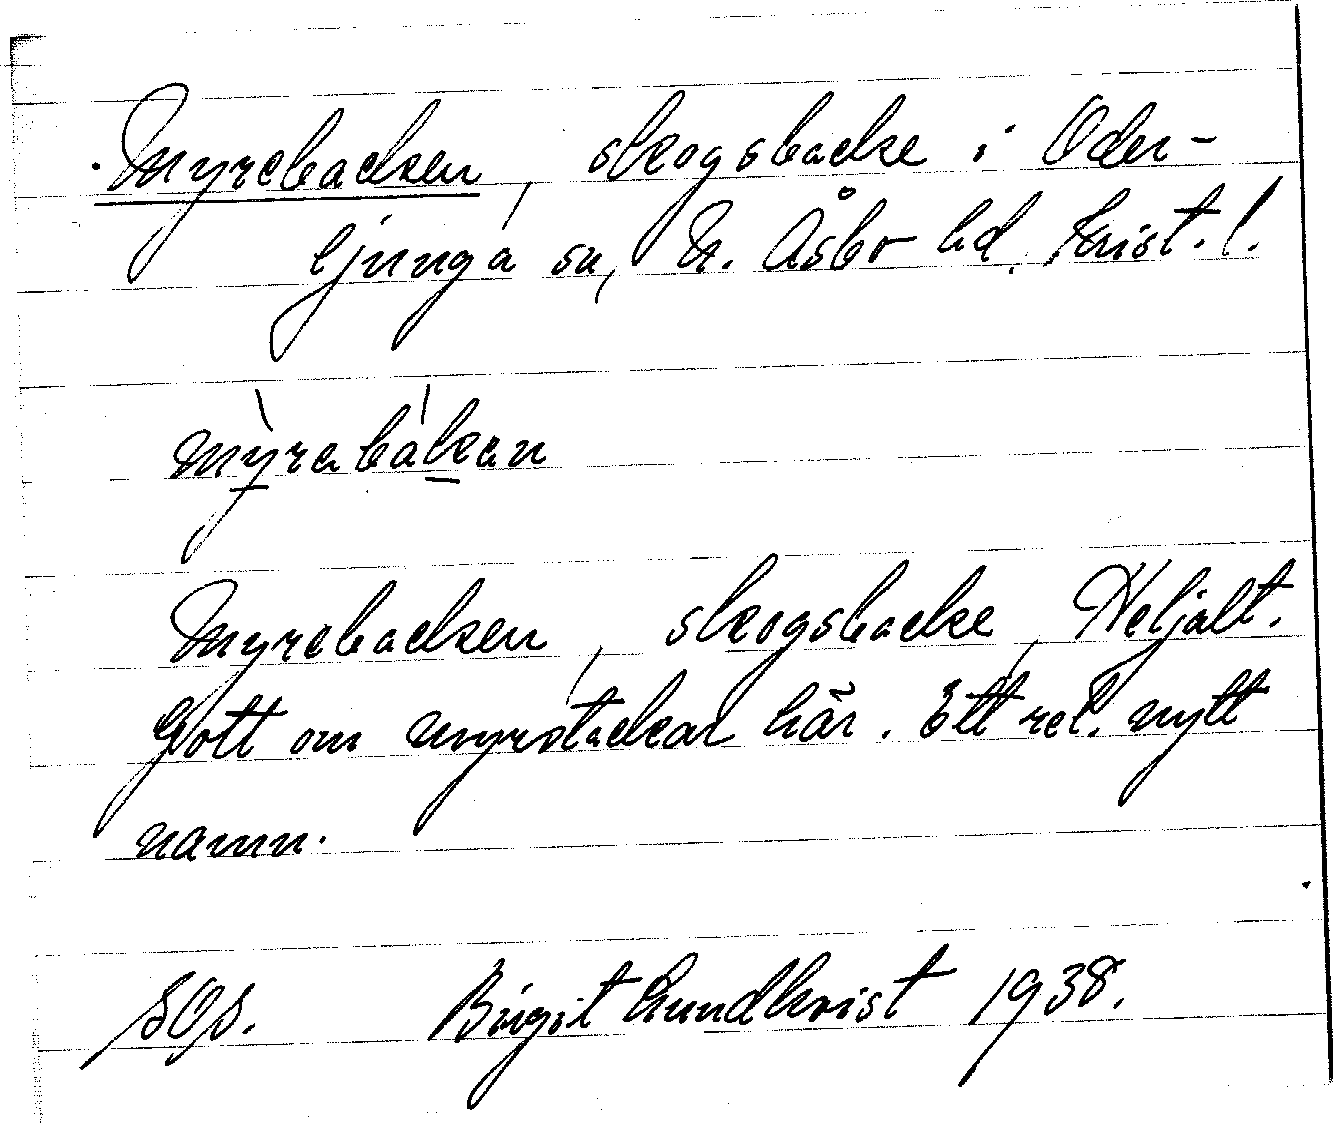 Myrebacken, skogsbacke i Oder-
ljunga sn, N. Åsbo hd. Krist. l.
mỳrabákan
Myrebacken, skogsbacke, Heljalt.
Gott om myrstackar här. Ett rel. nytt
namn.
SOS. Birgit Lundkvist 1938.